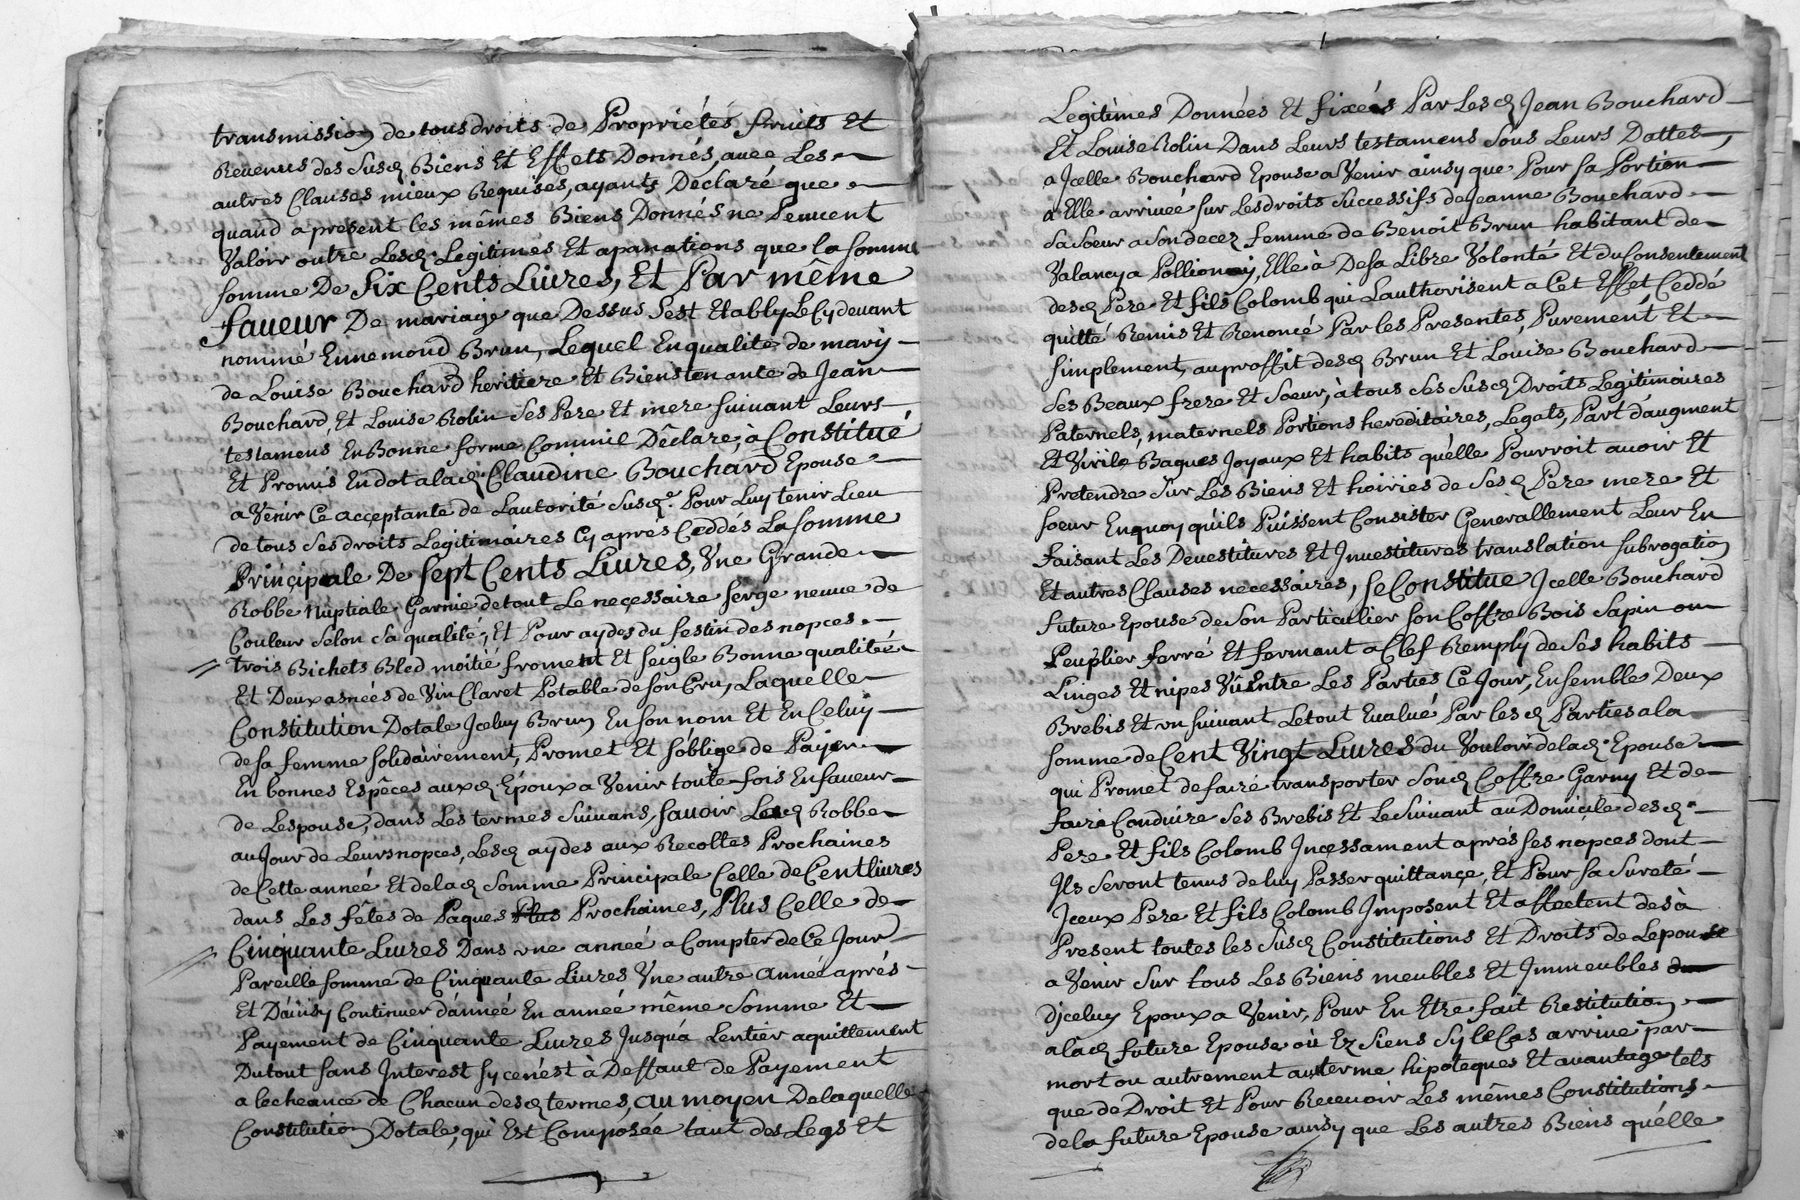 transmission de tous droits de Propriétés fruits Et
Revenus des Susd Biens Et Effets Donnés, avec Les
autres Clauses mieux Requises, ayants Déclaré que
quand a present les mêmes Biens Donnés ne Peuvent
Valoir outre Lesd. Legitimes Et apanations que la somme
somme De Six Cents Livres, Et Par même
faveur De mariage que Dessus s'est Etably Le Cydevant
nommé Ennemond Brun, Lequel En qualité de mary
de Louise Bouchard heritiere Et Bienstenante de Jean
Bouchard, Et Louise Rolin ses Pere Et mere suivant Leurs
testamens En Bonne forme Comm'il Déclare, à Constitué
Et Promis En dot a lad. Claudine Bouchard Epouse
a Venir Ce acceptante de L'autorité susd.e Pour Luy tenir Lieu
de tous ses droits Legitimaires Cy aprés Ceddés La somme
Principale De Sept Cents Livres, Vne Grande
Robbe nuptiale Garnie de tout Le necessaire serge neuve de
Couleur selon sa qualité; Et Pour aydes du festin des nopces
trois Bichets Bled moitié froment Et seigle Bonne qualitée
Et Deux asnées de Vin Claret Potable de son Cru, Laquelle
Constitution Dotale Jceluy Brun En son nom Et En Celuy
de sa femme solidairement, Promet Et s'oblige de Payer
En bonnes Espêces auxd. Epoux a Venir toute fois En faveur
de Lespouse, dans Les termes suivans, savoir Lad Robbe
au Jour de Leurs nopces, Lesd aydes aux Recoltes Prochaines
de Cette année Et de lad somme Principale Celle de Cent livres
dans Les fêtes de Paques Prochaines, Plus Celle de
Cinquante Livres Dans vne année a Compter de Ce Jour
Pareille somme de Cinquante Livres Vne autre année aprés
Et D'ainsy Continuer d'année En année même somme Et
Payement de Cinquante Livres Jusqu'a Lentier aquittement
Du tout sans Interest sy ce n'est à Deffaut de Payement
a lecheance de Chacun desd termes, au moyen De laquelle
Constitution Dotale, qui Est Composée tant des Legs Et
Legitimes Données Et fixées Par Lesd Jean Bouchard
Et Louise Rolin Dans Leurs testamens sous Leurs Dattes,
a Jcelle Bouchard Epouse a Venir ainsy que Pour sa Portion
a Elle arrivée sur Les droits successifs de Jeanne Bouchard
sa soeur a son decez femme de Benoit Brun habitant de
Valancy a Pollionay, Elle à De sa Libre Volonté Et du Consentement
desd Pere Et fils Colomb qui L'authorisent a Cet Effet Ceddé
quitté Remis Et Renoncé Par les Presentes, Purement Et
simplement, au proffit desd Brun Et Louise Bouchard
ses Beaux frere Et soeur, à tous ses susd Droits Legitimaires
Paternels, maternels Portions hereditaires, Legats, Part d'augment
Et Virile Bagues Joyaux Et habits qu'elle Pourroit avoir Et
Pretendre sur Les Biens Et hoiries de sesd Pere mere Et
soeur En quoy qu'ils Puissent Consister Generallement Leur En
faisant Les Devestitures Et Jnvestitures translation subrogation
Et autres Clauses necessaires, se Constitue Jcelle Bouchard
future Epouse de son Particulier son Coffre Bois sapin ou
Peuplier ferré Et fermant a Clef Remply de ses habits
Linges Et nipes Vû Entre Les Parties Ce Jour, Ensemble Deux
Brebis Et vn suivant Le tout Evalué Par lesd Parties a la
somme de Cent Vingt Livres du Vouloir de lad. Epouse
qui Promet de faire transporter sond Coffre Garny Et de
faire Conduire ses Brebis Et Le suivant au Domicile desd.
Pere Et fils Colomb Jncessament aprés ses nopces dont
Jls seront tenus de luy Passer quittançe, Et Pour sa sureté
Jceux Pere Et fils Colomb Jmposent Et affectent des à
Present toutes les susd Constitutions Et Droits de Lepouse
a Venir sur tous Les Biens meubles Et Jmmeubles
D'jceluy Epoux a Venir, Pour En Etre fait Restitution
a lad future Epouse où Ez siens sy le Cas arrive par
mort ou autrement au terme hipoteques Et avantage tels
que de Droit Et Pour Recevoir Les mêmes Constitutions
de la future Epouse ainsy que Les autres Biens qu'elle